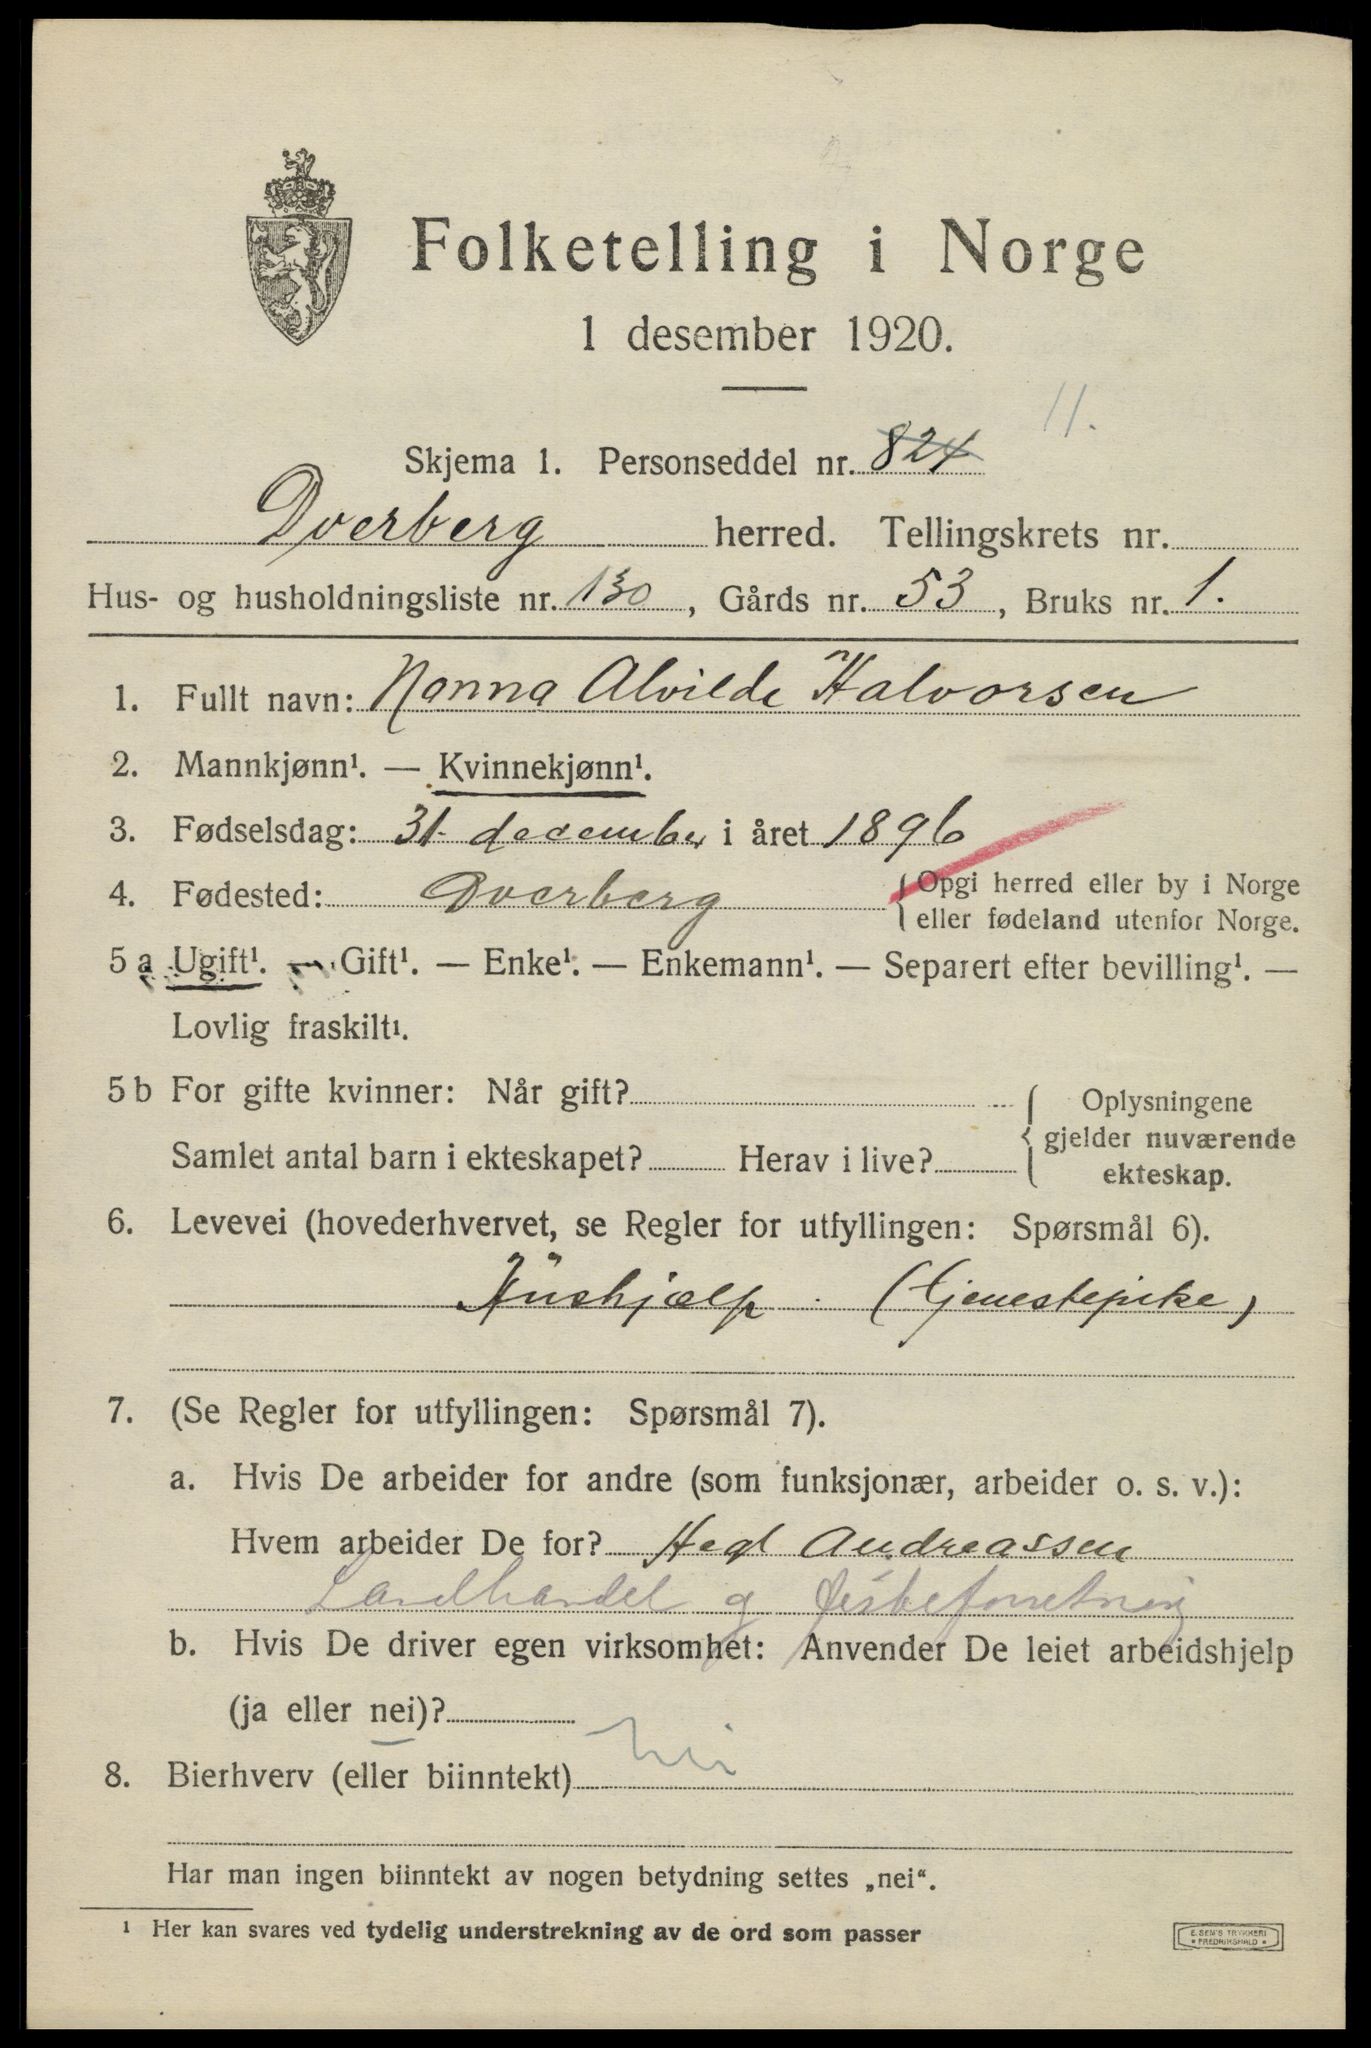 Folketelling i Norge
1 desember 1920.
11.
Skjema 1. Personseddel nr. 824
Dverberg herred. Tellingskrets nr.
Hus- og husholdningsliste nr. 130, Gårds nr. 53, Bruks nr. 1.
1. Fullt navn: Nanna Alvilde Halvorsen
2. Mannkjønn¹. — Kvinnekjønn¹.
3. Fødselsdag: 31. december i året 1896
4. Fødested: Dverberg { Opgi herred eller by i Norge
eller fødeland utenfor Norge.
5 a Ugift¹. — Gift¹. — Enke¹. — Enkemann¹. — Separert efter bevilling¹. —
Lovlig fraskilt¹.
5 b For gifte kvinner: Når gift? { Oplysningene
gjelder nuværende
Samlet antal barn i ekteskapet? Herav i live? ekteskap.
6. Levevei (hovederhvervet, se Regler for utfyllingen: Spørsmål 6).
Hushjælp. (tjenestepike)
7. (Se Regler for utfyllingen: Spørsmål 7).
a. Hvis De arbeider for andre (som funksjonær, arbeider o. s. v.):
Hvem arbeider De for? Andreassen
Landhandel og fiskeforretning
b. Hvis De driver egen virksomhet: Anvender De leiet arbeidshjelp
(ja eller nei)?
8. Bierhverv (eller biinntekt) nei
Har man ingen biinntekt av nogen betydning settes „nei“.
¹ Her kan svares ved tydelig understrekning av de ord som passer
E. SEM'S TRYKKERI
• FREDRIKSHALD •